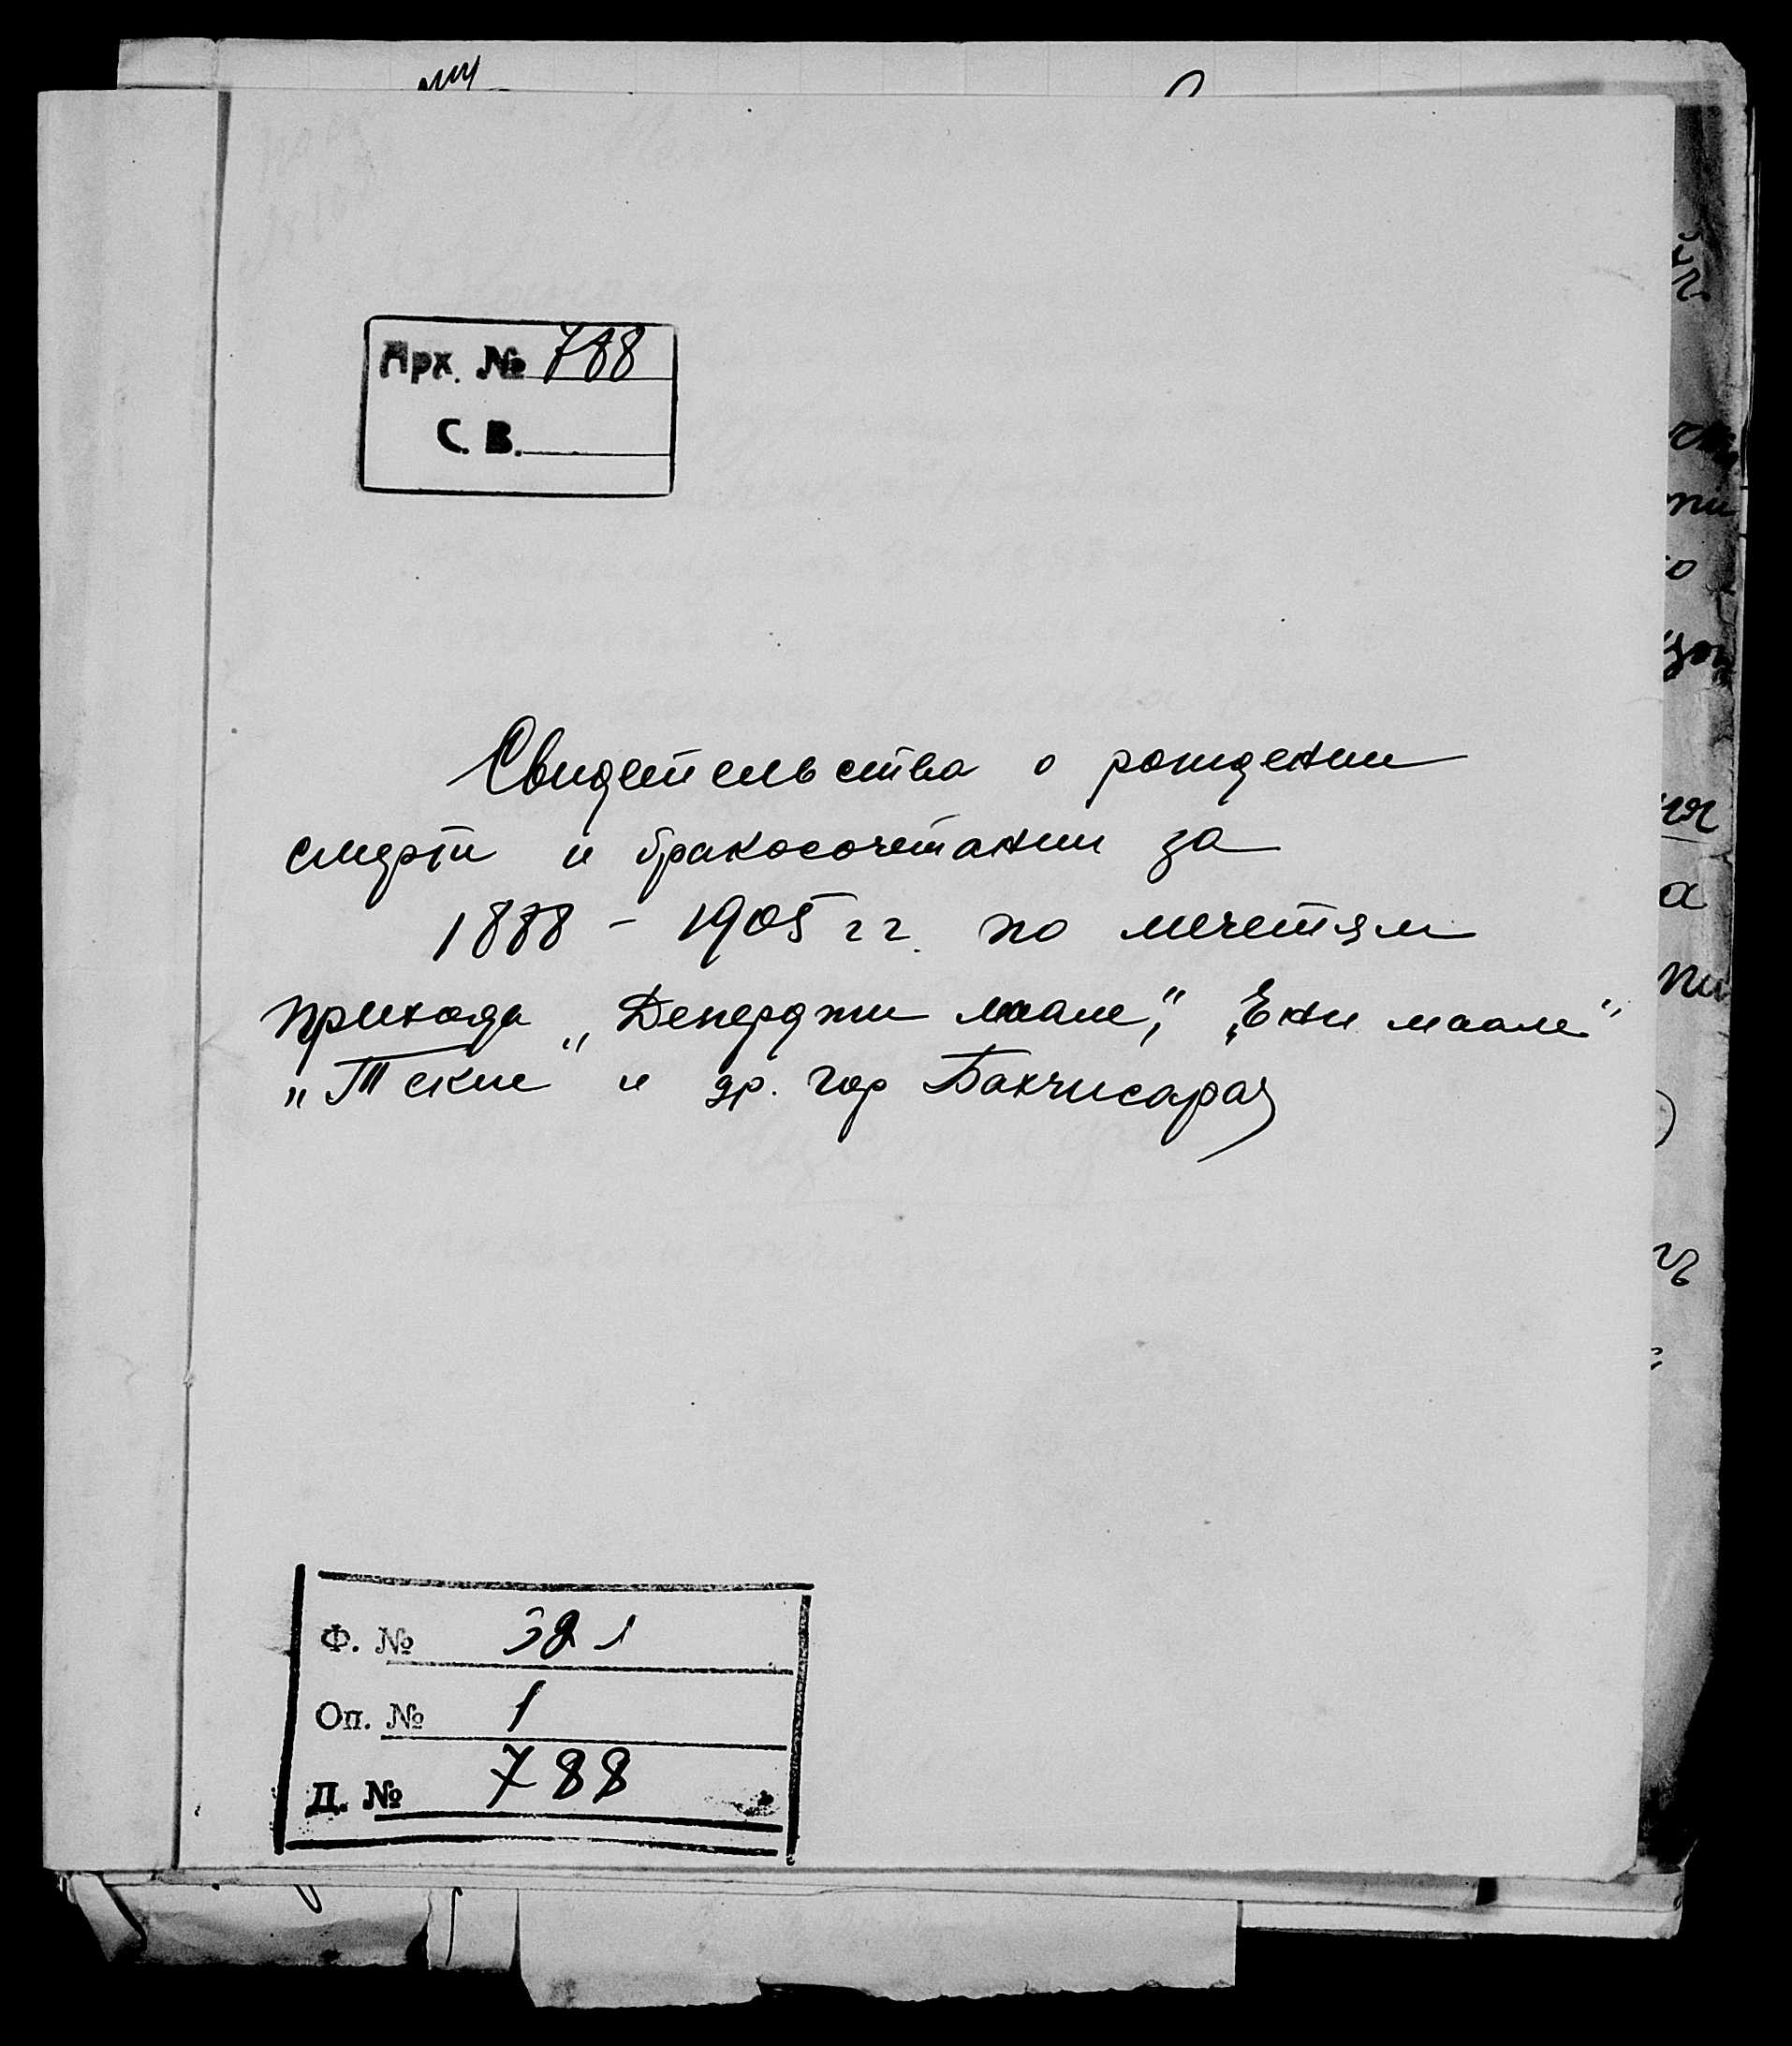 Арх. № 788
С. В.
Свидетельства о рождении
смерти и бракосочетании за
1888 - 1905 гг. по мечетям
прихода „Денерджи маале", „Ени маале"
„Текие и др. гор Бахчисарая
Ф. № 381
Оп. № 1
Д. № 788